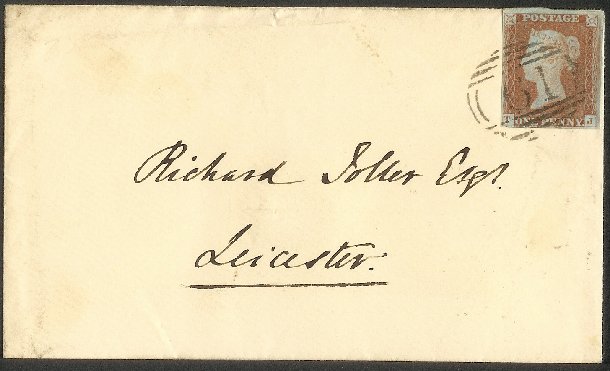 POSTAGE
ONE PENNY
Richard Toller Esqr.
Leicester.